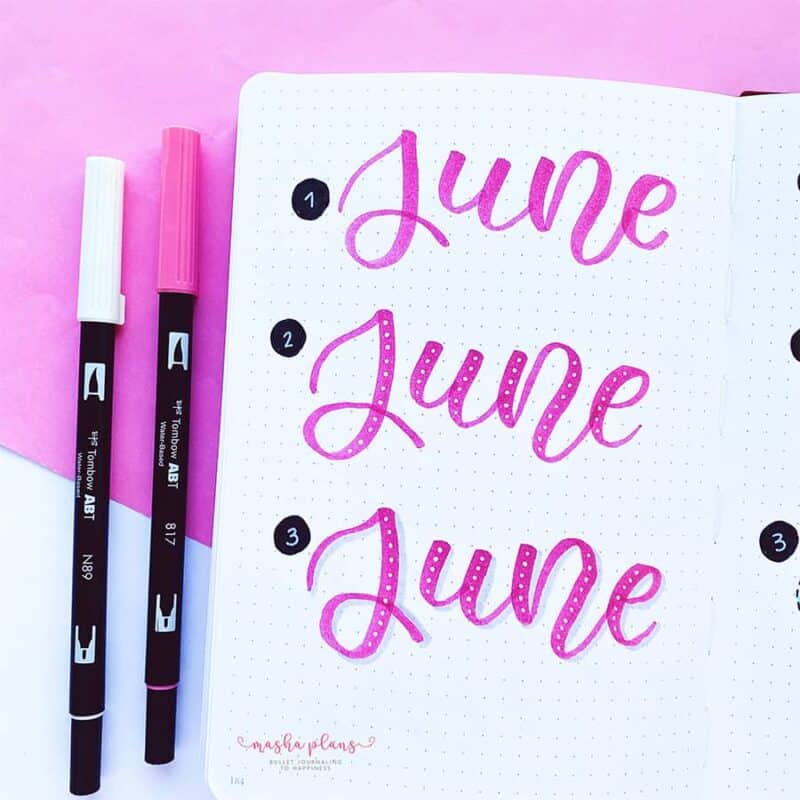 1
June
2
June
3
June
3
Tombow ABT
Water-Based
N89
Tombow ABT
Water-Based
817
masha plans
BULLET JOURNALING
TO HAPPINESS
184